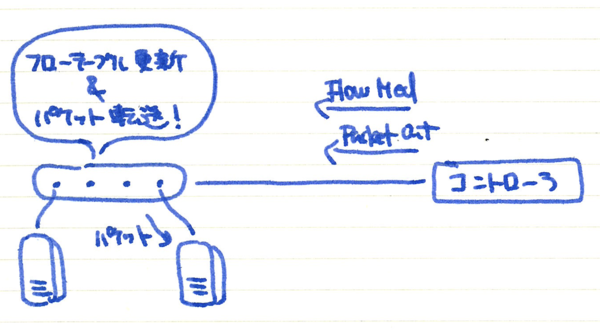 フローテーブル更新
&
パケット転送!
Flow Mod
Packet Out
コントローラ
パケット